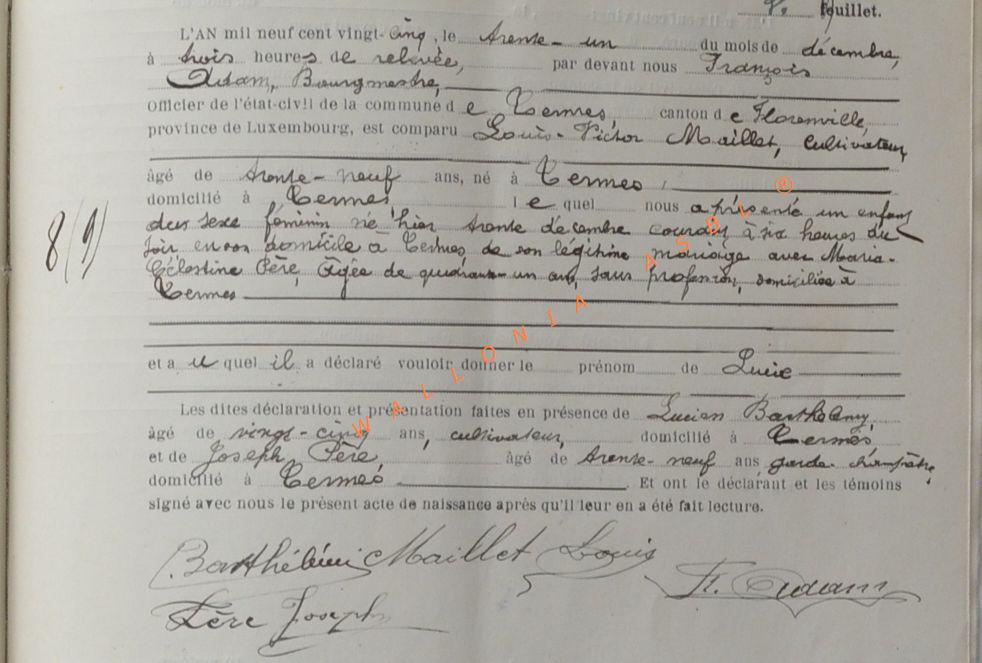 feuillet.
L'AN mil neuf cent vingt-cinq, le trente-un du mois de décembre,
à trois heures de relevée, par devant nous François
Adam, Bourgmestre,
officier de l'état-civil de la commune de Termes, canton de Florenville,
province de Luxembourg, est comparu Louis-Victor Maillet, cultivateur,
âgé de trente-neuf ans, né à Termes,
domicilié à Termes lequel nous a présenté un enfant
du sexe féminin né hier trente décembre courant à six heures du
soir en son domicile à Termes, de son légitime mariage avec Maria-
Célestine Père, âgée de quarante-un ans, sans profession, domiciliée à
Termes
et auquel il a déclaré vouloir donner le prénom de Lucie
Les dites déclaration et présentation faites en présence de Lucien Barthélemy,
âgé de vingt-cinq ans, cultivateur, domicilié à Termes
et de Joseph Père, âgé de trente-neuf ans garde-champêtre,
domicilié à Termes. Et ont le déclarant et les témoins
signé avec nous le présent acte de naissance après qu'il leur en a été fait lecture.
Barthélemi Maillet Louis
Fr. Adam
Père Joseph
8(9)
WALLONIA ASBL ©